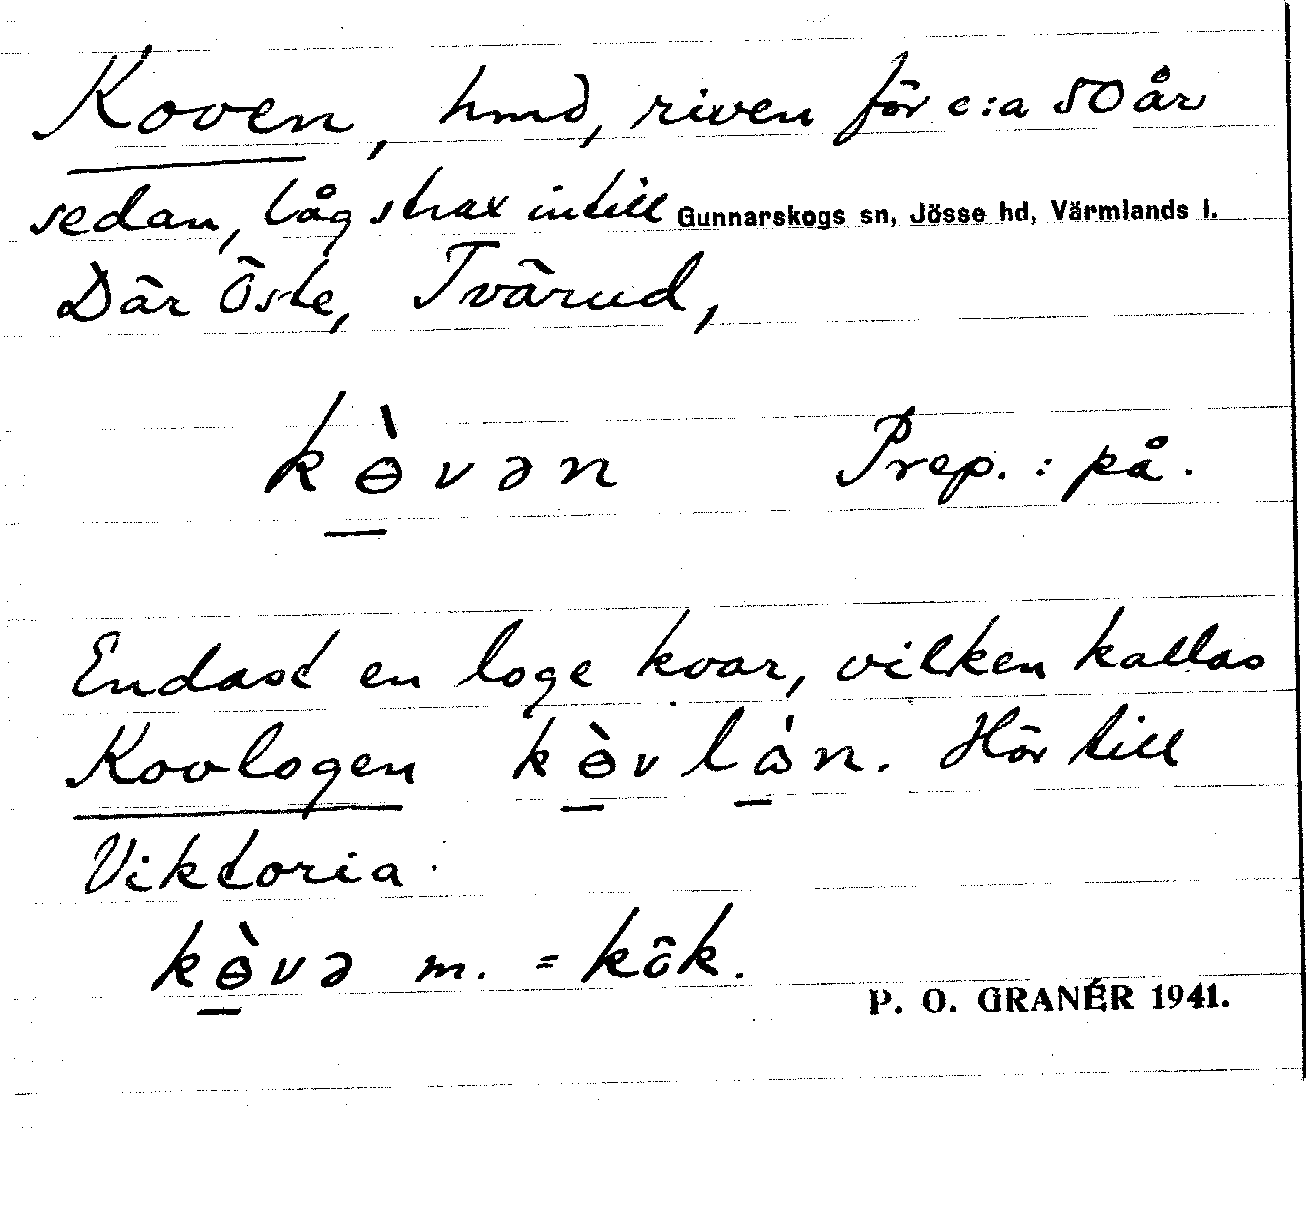 Koven, hmd, riven för c:a 50 år
sedan, låg strax intill Gunnarskogs sn, Jösse hd, Värmlands l.
Där Öste, Tvärud,
kɵ̀vən Prep.: på.
Endast en loge kvar, vilken kallas
Kovlogen kɵ̀vlån. Hör till
Viktoria.
kɵ̀və m. = kök.
P. O. GRANÉR 1941.